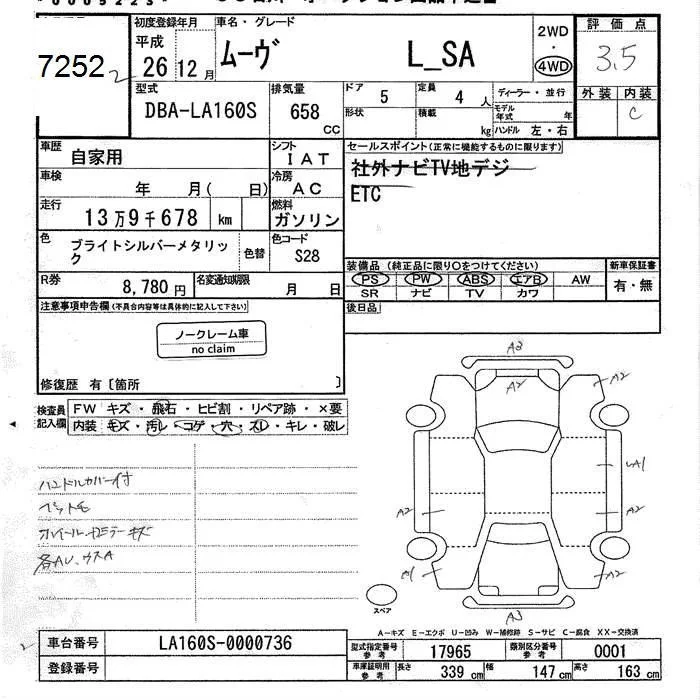 初度登録年月 車名・グレード 2WD ・ 4WD 評価点
平成 26年12月 ムーヴ L_SA 3.5
7252 2
型式 排気量 ドア 5 定員 4人 ディーラー・並行 外装 内装
DBA-LA160S 658 CC 形状 積載 kg モデル年式 年 C
ハンドル 左・右
車歴 自家用 シフト IAT セールスポイント(正常に機能するものに限ります)
社外ナビTV地デジ
車検 年 月( 日) 冷房 AC ETC
走行 13万9千678 km 燃料 ガソリン
色 ブライトシルバーメタリック 色替 色コード S28
装備品(純正品に限り○をつけてください) 新車保証書
PS PW ABS エアB AW 有・無
SR ナビ TV カワ
R券 8,780円 名変通知期限 月 日
後日品
注意事項申告欄(不具合内容等は具体的に記入して下さい)
ノークレーム車
no claim
修復歴 有〔箇所 〕
検査員記入欄 FW キズ・飛石・ヒビ割・リペア跡・×要
内装 キズ・汚レ・コゲ・穴・スレ・キレ・破レ
ハンドルカバー付
ペット毛
A3
A2
A2
UA1
A2
A2
A1
A2
A3
スペア
A-キズ E-エクボ U-凹み W-補修跡 S-サビ C-腐食 XX-交換済
2
車台番号 LA160S-0000736
登録番号
型式指定番号 参考 17965 類別区分番号 参考 0001
車庫証明用 参考 長さ 339 cm 幅 147 cm 高さ 163 cm